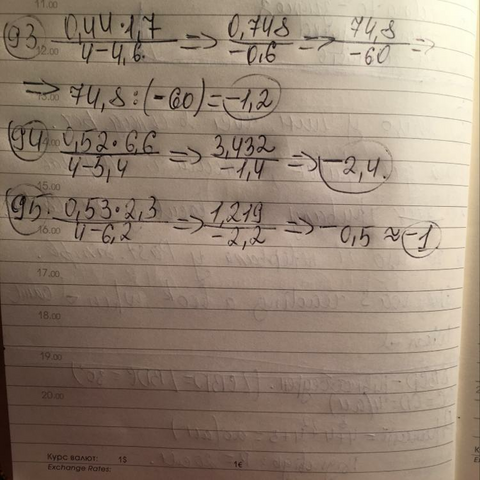 11.00
93. 0,44·1,7 / 4-4,6. => 0,748 / -0,6 => 74,8 / -60 =>
12.00
=> 74,8 : (-60) = -1,2
94. 0,52·6,6 / 4-5,4 => 3,432 / -1,4 => -2,4.
15.00
95. 0,53·2,3 / 4-6,2 => 1,219 / -2,2 => -0,5 ≈ -1
16.00
17.00
18.00
19.00
20.00
Курс валют: 1$ 1€
Exchange Rates: